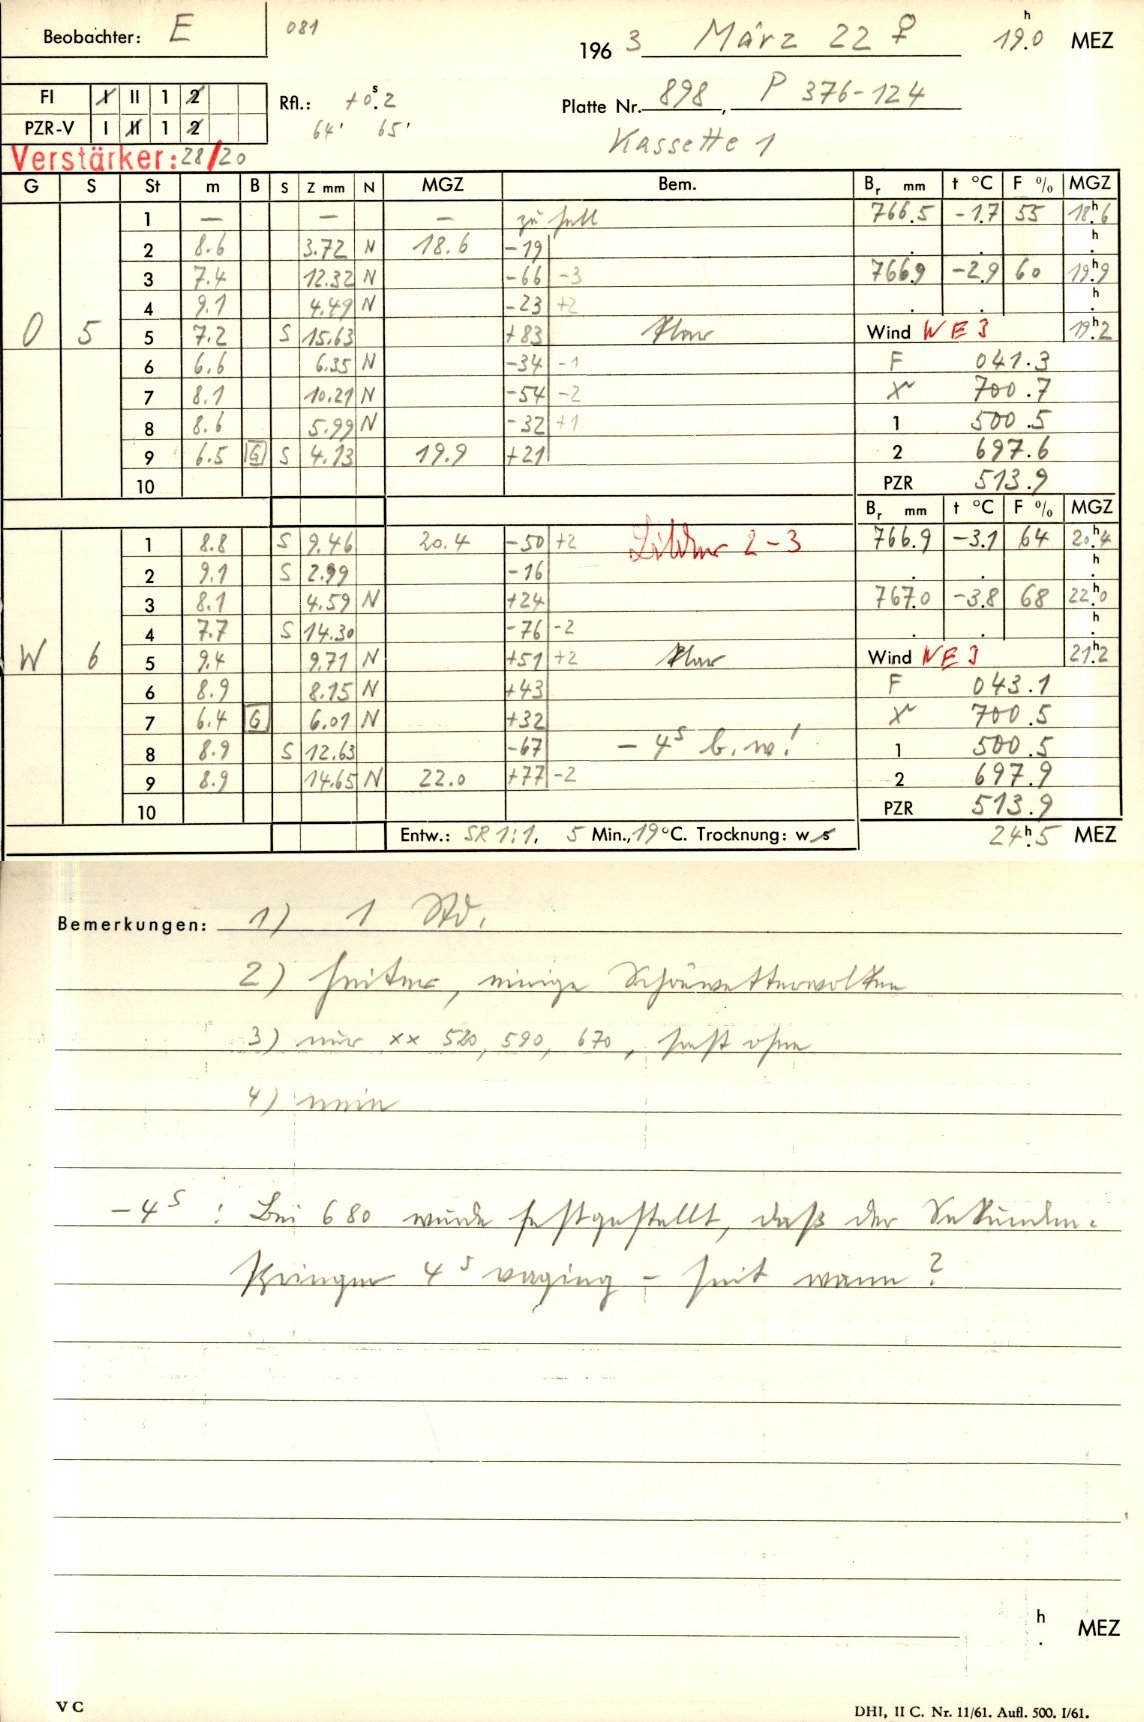 Beobachter: E 081 1963 März 22 ♀ 19h.0 MEZ
FI I II 1 2 Rfl.: +0s.2 Platte Nr. 898, P 376-124
PZR-V I II 1 2 64' 65' Kassette 1
Verstärker: 28/20
G S St m B S Z mm N MGZ Bem. Br mm t °C F % MGZ
1 — — — zu hell 766.5 -1.7 55 18h.6
2 8.6 3.72 N 18.6 -19 . . h.
3 7.4 12.32 N -66 -3 766.9 -2.9 60 19h.9
4 9.1 4.49 N -23 +2 . . h.
O 5 5 7.2 S 15.63 +83 klar Wind NE 3 19h.2
6 6.6 6.35 N -34 -1 F 041.3
7 8.1 10.21 N -54 -2 700.7
8 8.6 5.99 N -32 +1 1 500.5
9 6.5 G S 4.13 19.9 +21 2 697.6
10 PZR 513.9
Br mm t °C F % MGZ
1 8.8 S 9.46 20.4 -50 +2 Bilder 2-3 766.9 -3.1 64 20h.4
2 9.1 S 2.99 -16 . . h.
3 8.1 4.59 N +24 767.0 -3.8 68 22h.0
4 7.7 S 14.30 -76 -2 . . h.
W 6 5 9.4 9.71 N +51 +2 klar Wind NE 3 21h.2
6 8.9 8.15 N +43 F 043.1
7 6.4 G 6.01 N +32 700.5
8 8.9 S 12.63 -67 -4s b.w.! 1 500.5
9 8.9 14.65 N 22.0 +77 -2 2 697.9
10 PZR 513.9
Entw.: SR 1:1, 5 Min., 19 °C. Trocknung: w s 24h.5 MEZ
Bemerkungen: 1) 1 Std.
2) heiter, einige Schönwetterwolken
3) nur xx 520, 590, 670, sonst ohne
4) nein
-4s: Bei 680 wurde festgestellt, daß der Sekunden-
springer 4s vorging - seit wann?
h. MEZ
V C
DHI, II C. Nr. 11/61. Aufl. 500. I/61.